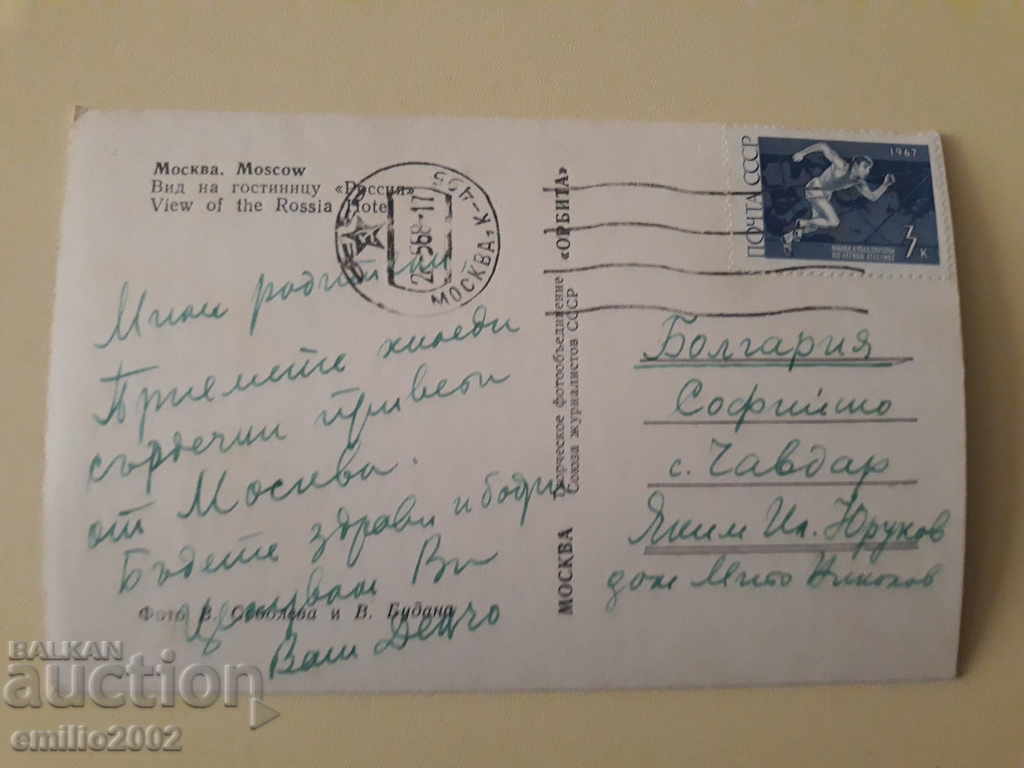 Москва. Moscow
Вид на гостиницу «Россия»
View of the Rossia Hotel
МОСКВА, К-
68-17
Мили родители
Приемете хиляди
сърдечни привети
от Москва.
Бъдете здрави и бодри
Целувам Ви
Ваш Дечо
Фото В. Соболева и В. Будана
МОСКВА Творческое фотообъединение «ОРБИТА»
Союза журналистов СССР
ПОЧТА СССР
1967
7к
Болгария
Софийско
с. Чавдар
Яким Ил. Юруков
дом Мито Николов
BALKAN
auction
emilio2002